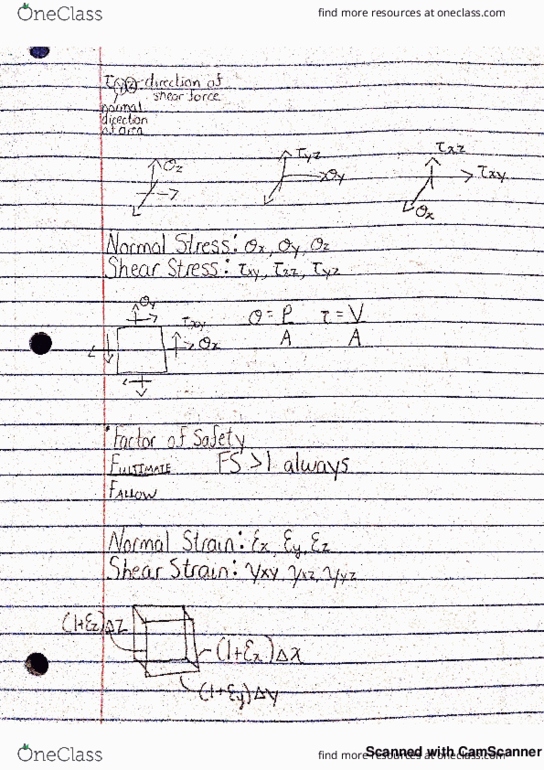 OneClass
find more resources at oneclass.com
direction of
shear force
normal
direction
of area
σz
τyz
σy
τxz
τxy
σx
Normal Stress: σx, σy, σz
Shear Stress: τxy, τxz, τyz
σy
τxy
σx
σ = P/A τ = V/A
Factor of Safety
FULTIMATE FS > 1 always
FALLOW
Normal Strain: εx, εy, εz
Shear Strain: γxy, γxz, γyz
(1+εz)Δz
(1+εx)Δx
(1+εy)Δy
OneClass
find more resources at oneclass.com
Scanned with CamScanner